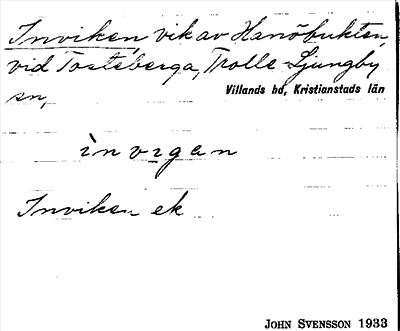 Inviken vik av Hanöbukten,
vid Tosteberga, Trolle-Ljungby
sn,
Villands hd, Kristianstads län
ìnvigan
Inviken ek
JOHN SVENSSON 1933